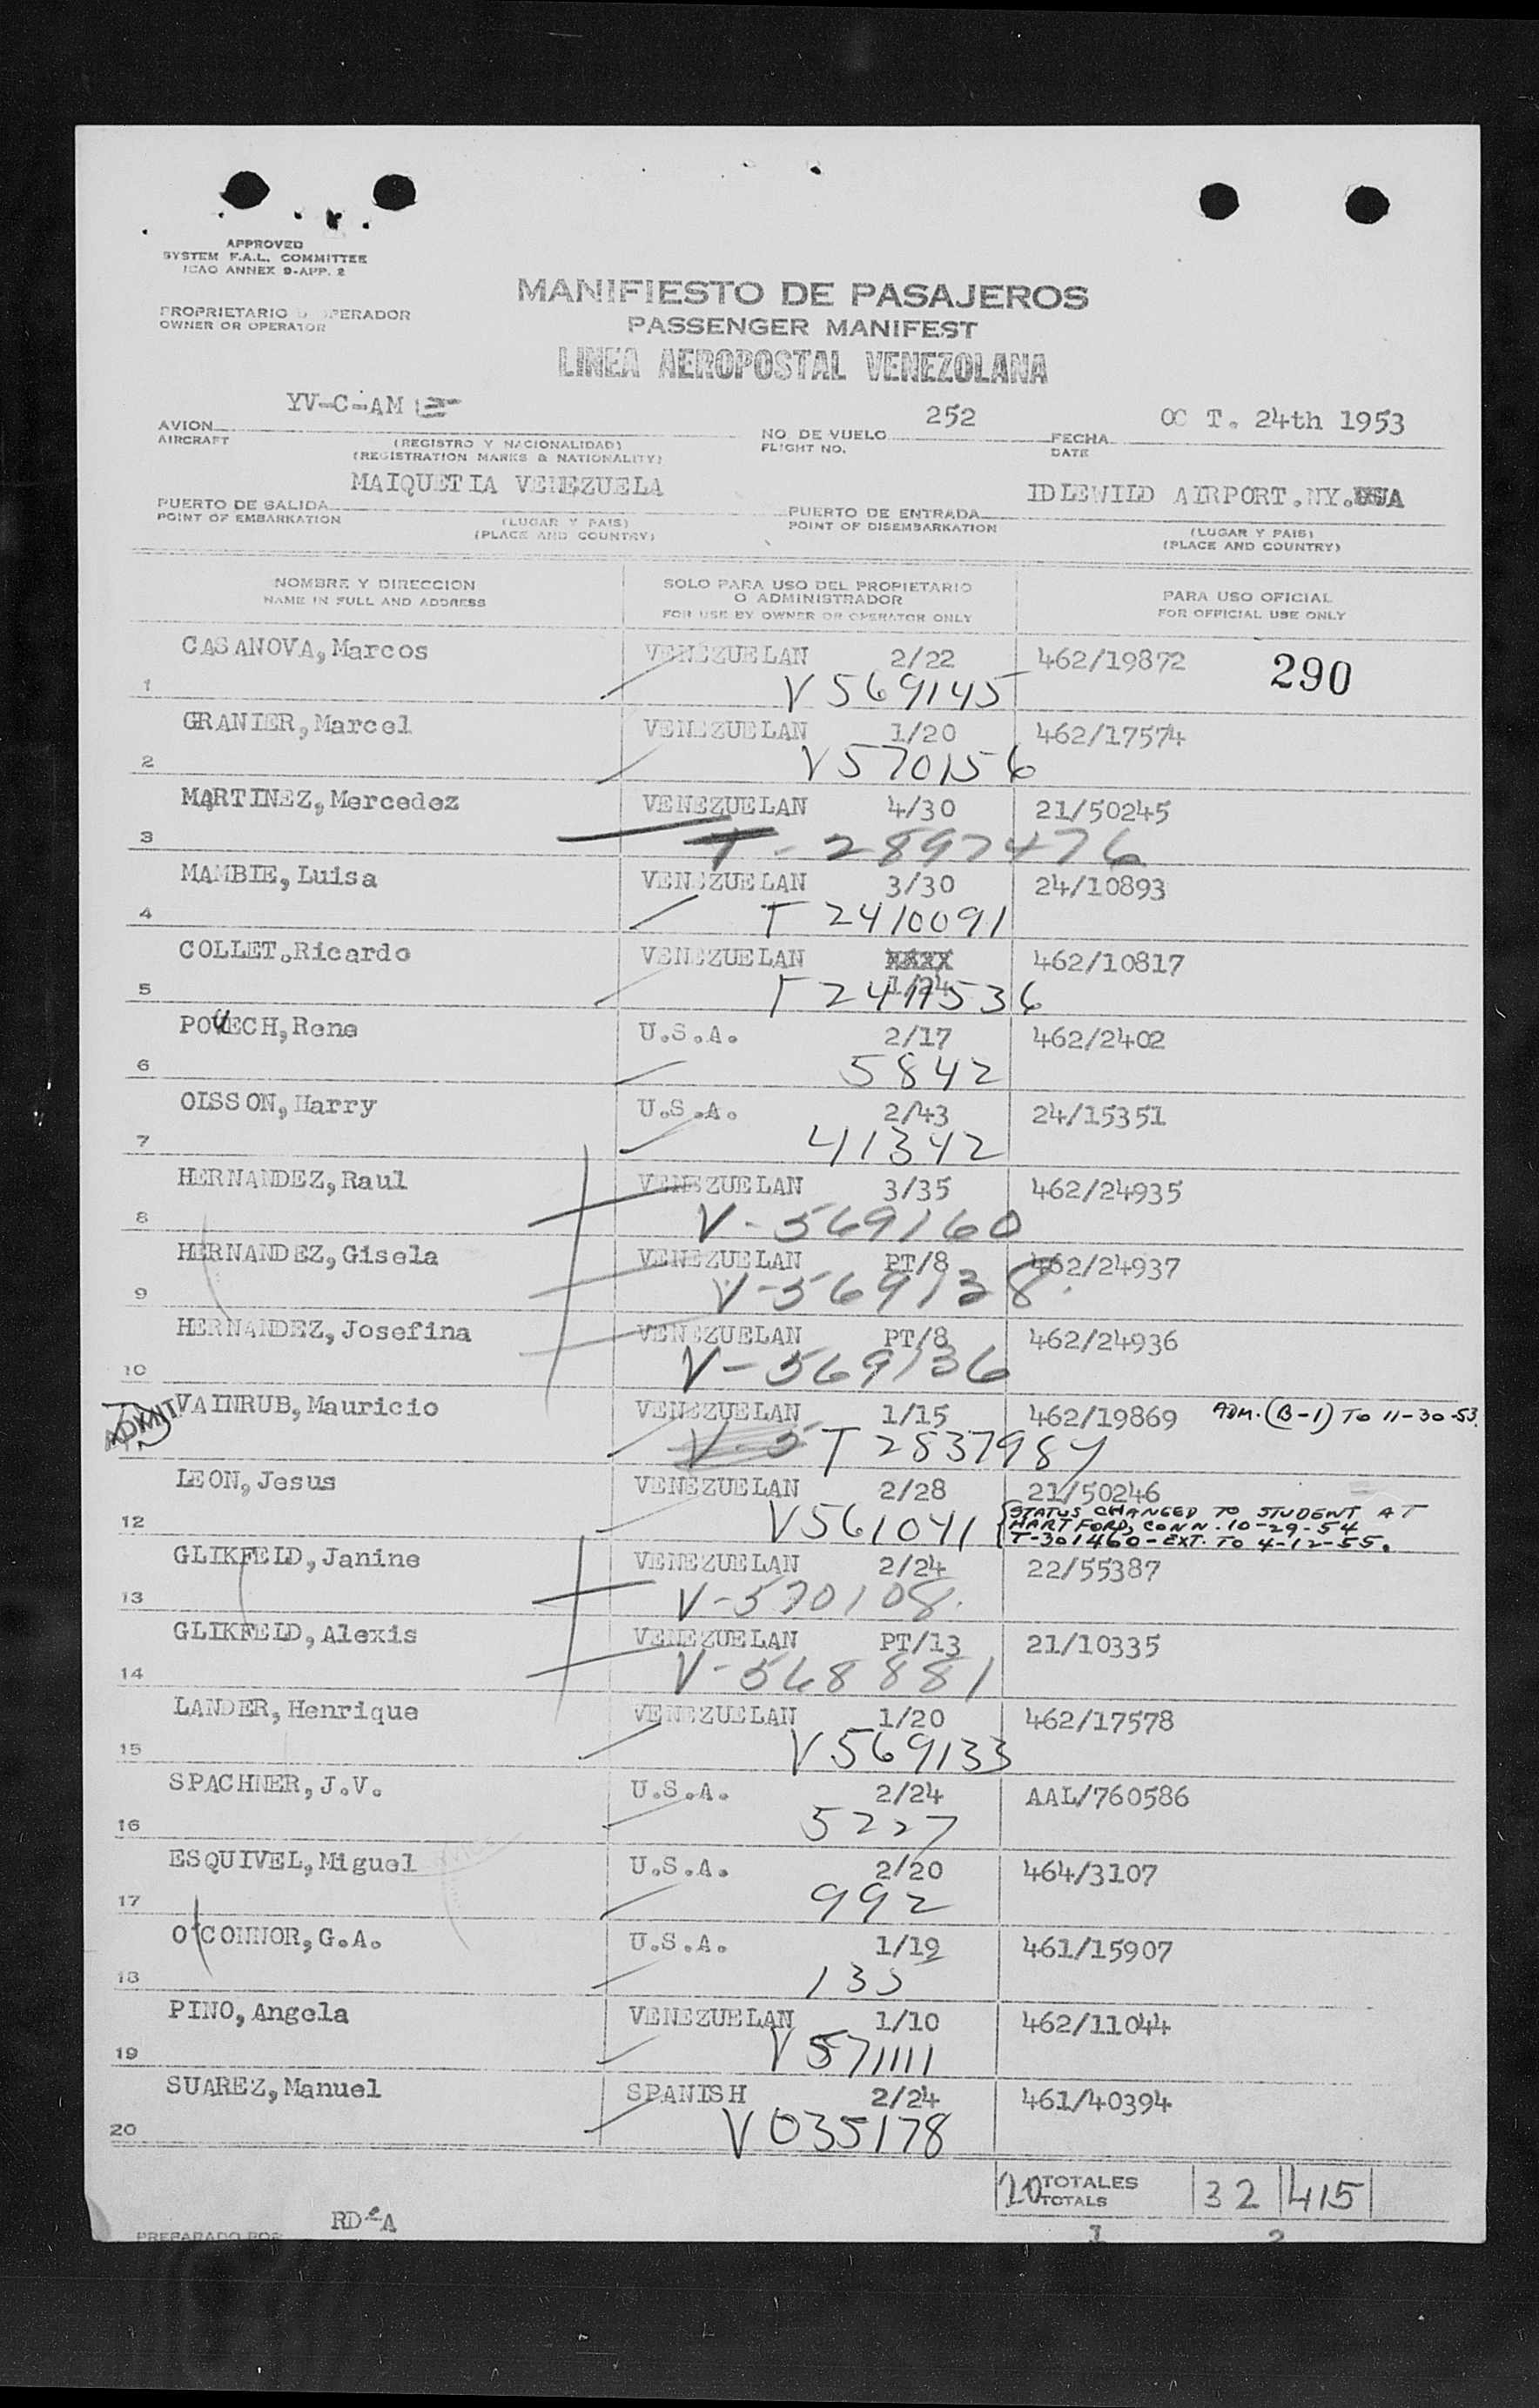 APPROVED
SYSTEM F.A.L. COMMITTEE
ICAO ANNEX 9-APP. 2
MANIFIESTO DE PASAJEROS
PROPRIETARIO OPERADOR
OWNER OR OPERATOR
PASSENGER MANIFEST
LINEA AEROPOSTAL VENEZOLANA
YV-C-AM 252 OC T. 24th 1953
AVION NO. DE VUELO FECHA
AIRCRAFT (REGISTRO Y NACIONALIDAD) FLIGHT NO. DATE
(REGISTRATION MARKS & NATIONALITY)
MAIQUETIA VENEZUELA IDLEWILD AIRPORT.NY.USA
PUERTO DE SALIDA PUERTO DE ENTRADA
POINT OF EMBARKATION (LUGAR Y PAIS) POINT OF DISEMBARKATION (LUGAR Y PAIS)
(PLACE AND COUNTRY) (PLACE AND COUNTRY)
NOMBRE Y DIRECCION SOLO PARA USO DEL PROPIETARIO O ADMINISTRADOR PARA USO OFICIAL
NAME IN FULL AND ADDRESS FOR USE BY OWNER OR OPERATOR ONLY FOR OFFICIAL USE ONLY
CASANOVA, Marcos VENEZUELAN 2/22 462/19872 290
1 V 569145
GRANIER, Marcel VENEZUELAN 1/20 462/17574
2 V 570156
MARTINEZ, Mercedez VENEZUELAN 4/30 21/50245
3 T-2897476
MAMBIE, Luisa VENEZUELAN 3/30 24/10893
4 T 2410091
COLLET.Ricardo VENEZUELAN XXXX 462/10817
1/24
5 T 2411536
POUECH, Rene U.S.A. 2/17 462/2402
6 5842
OLSSON, Harry U.S.A. 2/43 24/15351
7 41342
HERNANDEZ, Raul VENEZUELAN 3/35 462/24935
8 V-569160
HERNANDEZ, Gisela VENEZUELAN PT/8 462/24937
9 V-569138.
HERNANDEZ, Josefina VENEZUELAN PT/8 462/24936
10 V-569136
ADMIT VAINRUB, Mauricio VENEZUELAN 1/15 462/19869 ADM. (B-1) TO 11-30-53.
V-5 T 2837984
LEON, Jesus VENEZUELAN 2/28 21/50246
12 V561041 STATUS CHANGED TO STUDENT AT
HARTFORD, CONN. 10-29-54
T-301460-EXT. TO 4-12-55.
GLIKFELD, Janine VENEZUELAN 2/24 22/55387
13 V-570108.
GLIKFELD, Alexis VENEZUELAN PT/13 21/10335
14 V-568881
LANDER, Henrique VENEZUELAN 1/20 462/17578
15 V569133
SPACHNER, J.V. U.S.A. 2/24 AAL/760586
16 5227
ESQUIVEL, Miguel U.S.A. 2/20 464/3107
17 992
O'CONNOR, G.A. U.S.A. 1/19 461/15907
18 135
PINO, Angela VENEZUELAN 1/10 462/11044
19 V 571111
SUAREZ, Manuel SPANISH 2/24 461/40394
20 V 035178
20 TOTALES 32 415
TOTALS
RD A
PREPARADO POR 1 2